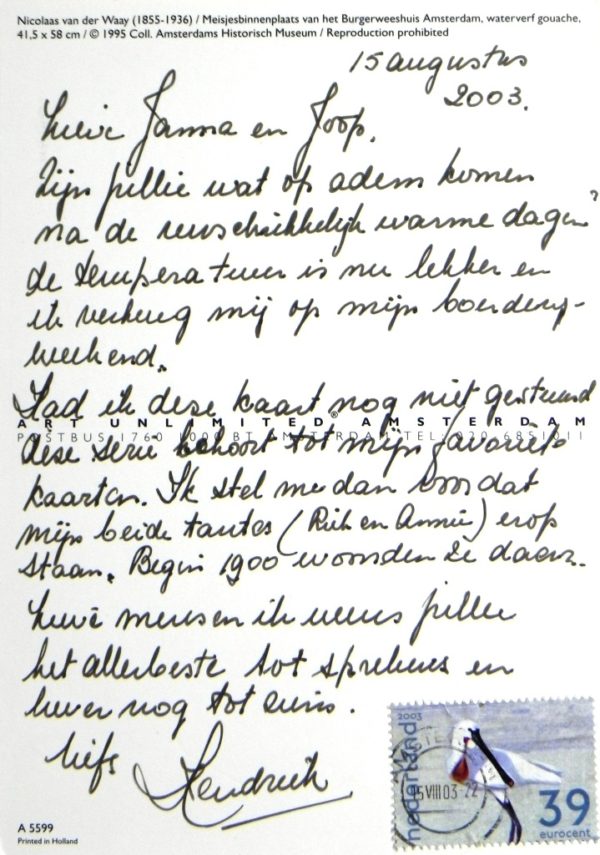 Nicolaas van der Waay (1855-1936) / Meisjesbinnenplaats van het Burgerweeshuis Amsterdam, waterverf gouache,
41,5 x 58 cm / © 1995 Coll. Amsterdams Historisch Museum / Reproduction prohibited
15 augustus
2003.
Lieve Janna en Joop,
Zijn jullie wat op adem komen
na de verschrikkelijk warme dagen?
de temperatuur is nu lekker en
ik verheug mij op mijn
weekend.
Had ik deze kaart nog niet gestuurd
ART UNLIMITED® AMSTERDAM
POSTBUS 1760 1000 BT AMSTERDAM TEL: 020-6851011
deze serie behoort tot mijn favoriete
kaarten. Ik stel me dan voor dat
mijn beide tantes (Riek en Annie) erop
staan. Begin 1900 woonden ze daar.
Lieve mensen ik wens jullie
het allerbeste tot sprekens en
liever nog tot ziens.
liefs Hendrik
2003
nederland
15 VIII 03-22
39
eurocent
A 5599
Printed in Holland